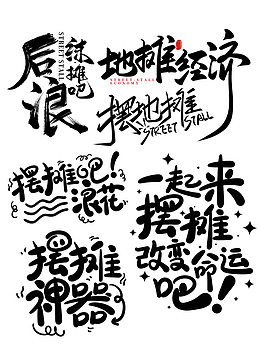 后浪
STREET STALL
摊吧
地摊经济
STREET STALL
ECONOMY
摆地摊
STREET STALL
摆摊吧!
浪花
摆摊
神器
一起来
摆摊
改变命运
吧!